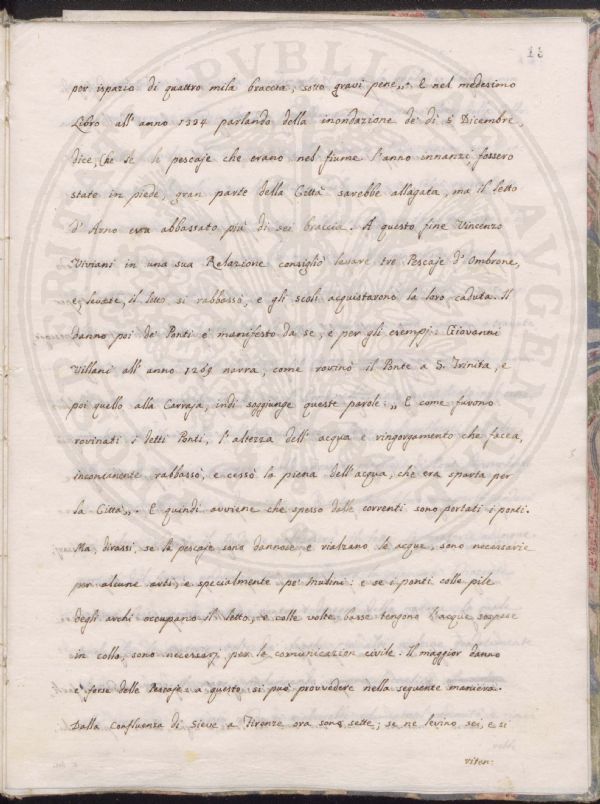 13
per ispazio di quattro mila braccia, sotto gravi pene„. E nel medesimo
Libro all' anno 1334 parlando della inondazione de' dì 5 Dicembre,
dice, Che se le pescaje che erano nel fiume l'anno innanzi, fossero
state in piede, gran parte della Città sarebbe allagata, ma il letto
d' Arno era abbassato più di sei braccia. A questo fine Vincenzo
Viviani in una sua Relazione consigliò levare tre Pescaje d' Ombrone,
e, levate, il letto si rabbassò, e gli scoli acquistarono la loro caduta. Il
danno poi de' Ponti è manifesto da se, e per gli esempj. Giovanni
Villani all' anno 1269 narra, come rovinò il Ponte a S. Trinita, e
poi quello alla Carraja, indi soggiunge queste parole: „ E come furono
rovinati i detti Ponti, l' altezza dell' acqua e ringorgamento che facea,
incontanente rabbassò, e cessò la piena dell' acqua, che era sparta per
la Città„. E quindi avviene che spesso dalle correnti sono portati i ponti.
Ma, dirassi, se le pescaje sono dannose e rialzano le acque, sono necessarie
per alcune arti, e specialmente pe' Mulini: e se i ponti colle pile
degli archi occupano il letto, e colle volte basse tengono l'acque sospese
in collo, sono necessarj per la comunicazion civile. Il maggior danno
è forse delle Pescaje: a questo si può provvedere nella seguente maniera.
Dalla confluenza di Sieve a Firenze ora sono sette; se ne levino sei, e si